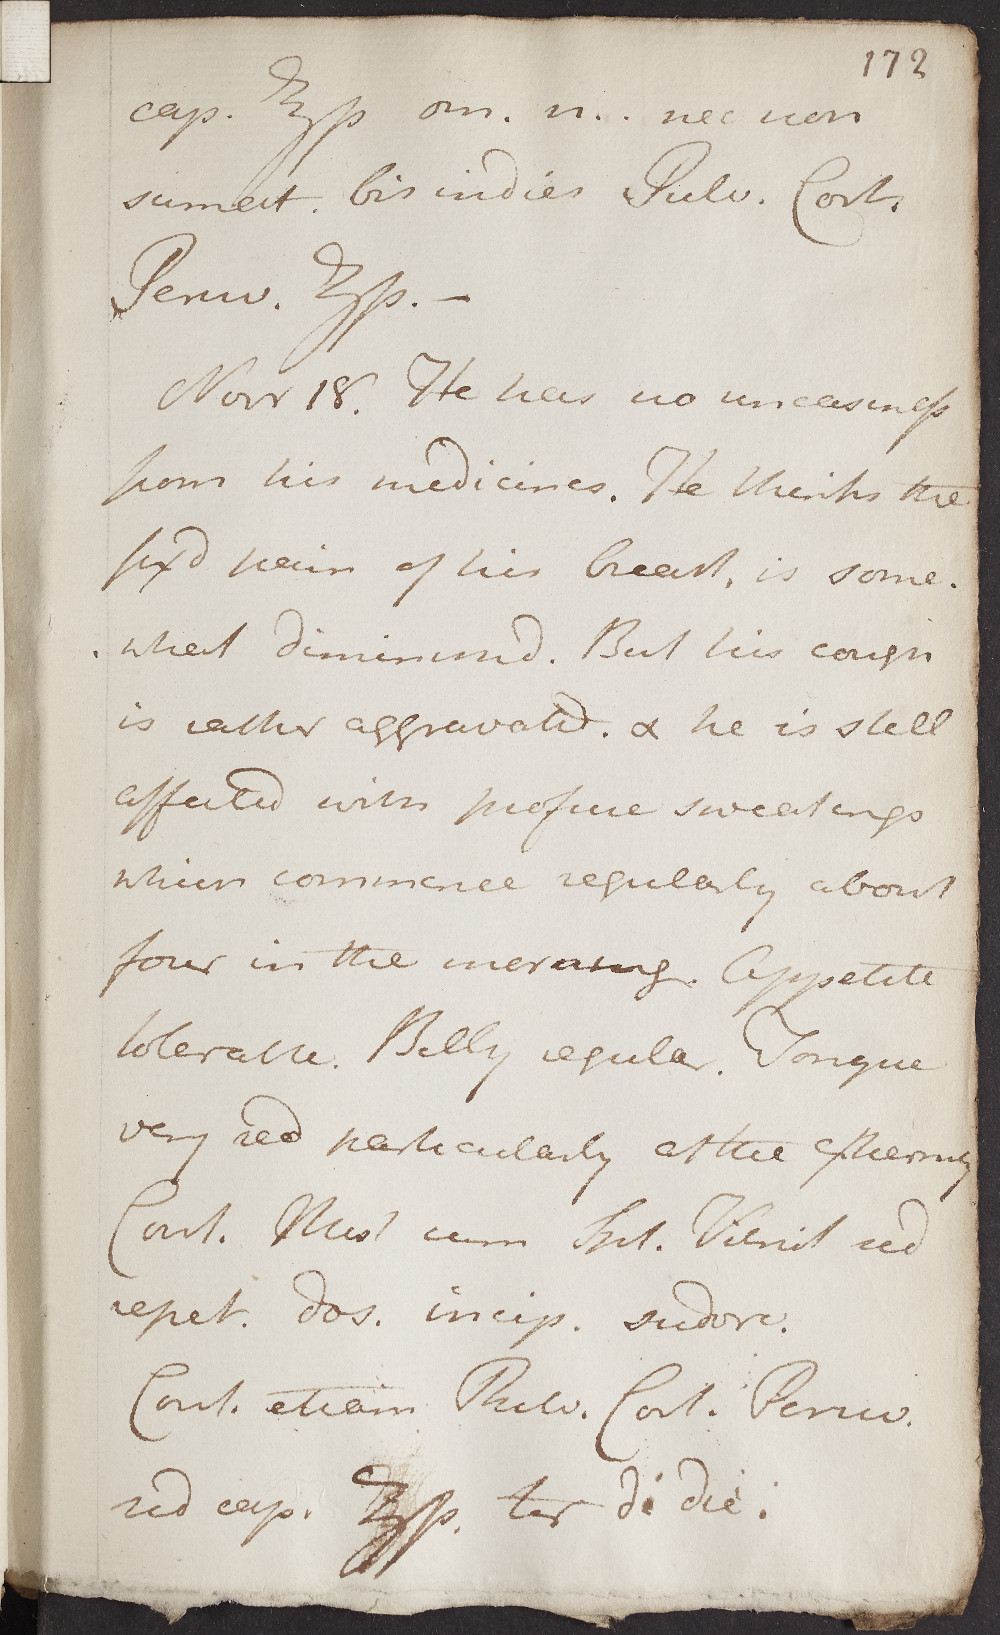 172
cap. ʒſs om. n.. nec non
sumat. bis indies Pulv. Cort.
Peruv. ʒſs. —
Novr 18. He has no uneasineſs
from his medicines. He thinks the
fixd pain of his breast, is some-
what diminishd. But his cough
is rather aggravated. & he is still
affected with profuse sweatings
which commence regularly about
four in the morning. Appetite
tolerable. Belly regular. Tongue
very red particularly at the
Cont. Mist cum Spt. Vitriol sed
repet. dos. incip. sudore.
Cont. etiam Pulv. Cort. Peruv.
sed cap. ʒſs. ter di die.